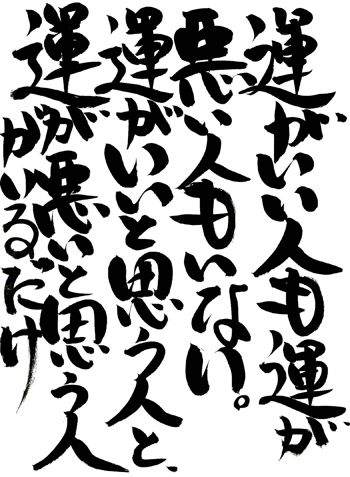 運がいい人も運が
悪い人もいない。
運がいいと思う人と、
運が悪いと思う人
がいるだけ